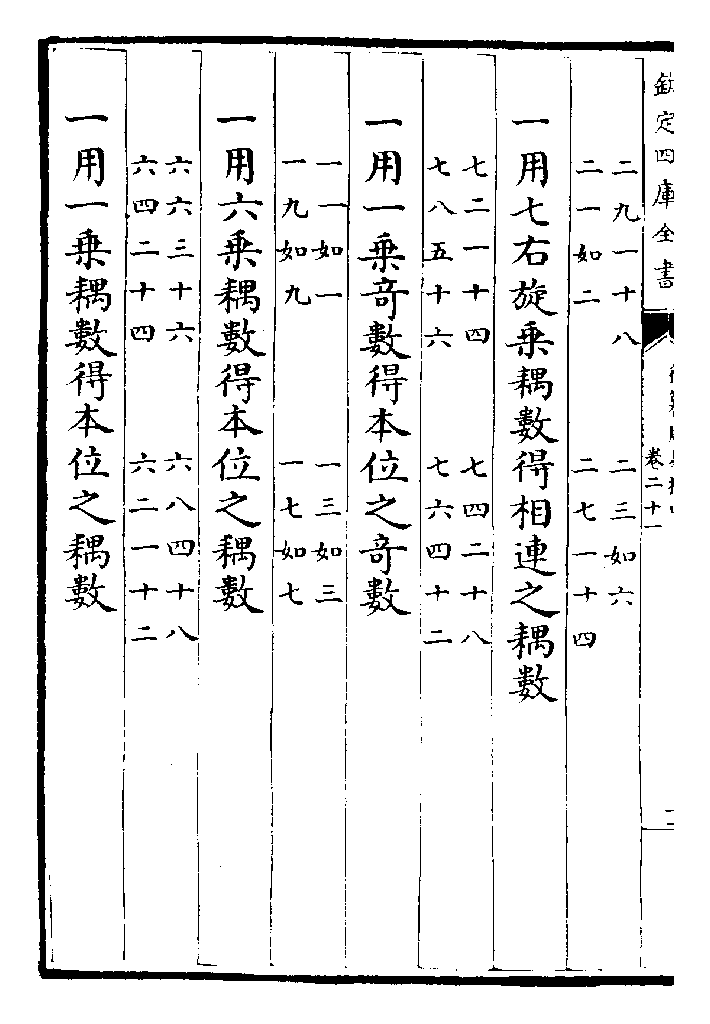 欽定四庫全書
卷二十一
二九一十八 二三如六
二一如二 二七一十四
一用七右旋乘耦數得相連之耦數
七二一十四 七四二十八
七八五十六 七六四十二
一用一乘奇數得本位之奇數
一一如一 一三如三
一九如九 一七如七
一用六乘耦數得本位之耦數
六六三十六 六八四十八
六四二十四 六二一十二
一用一乘耦數得本位之耦數